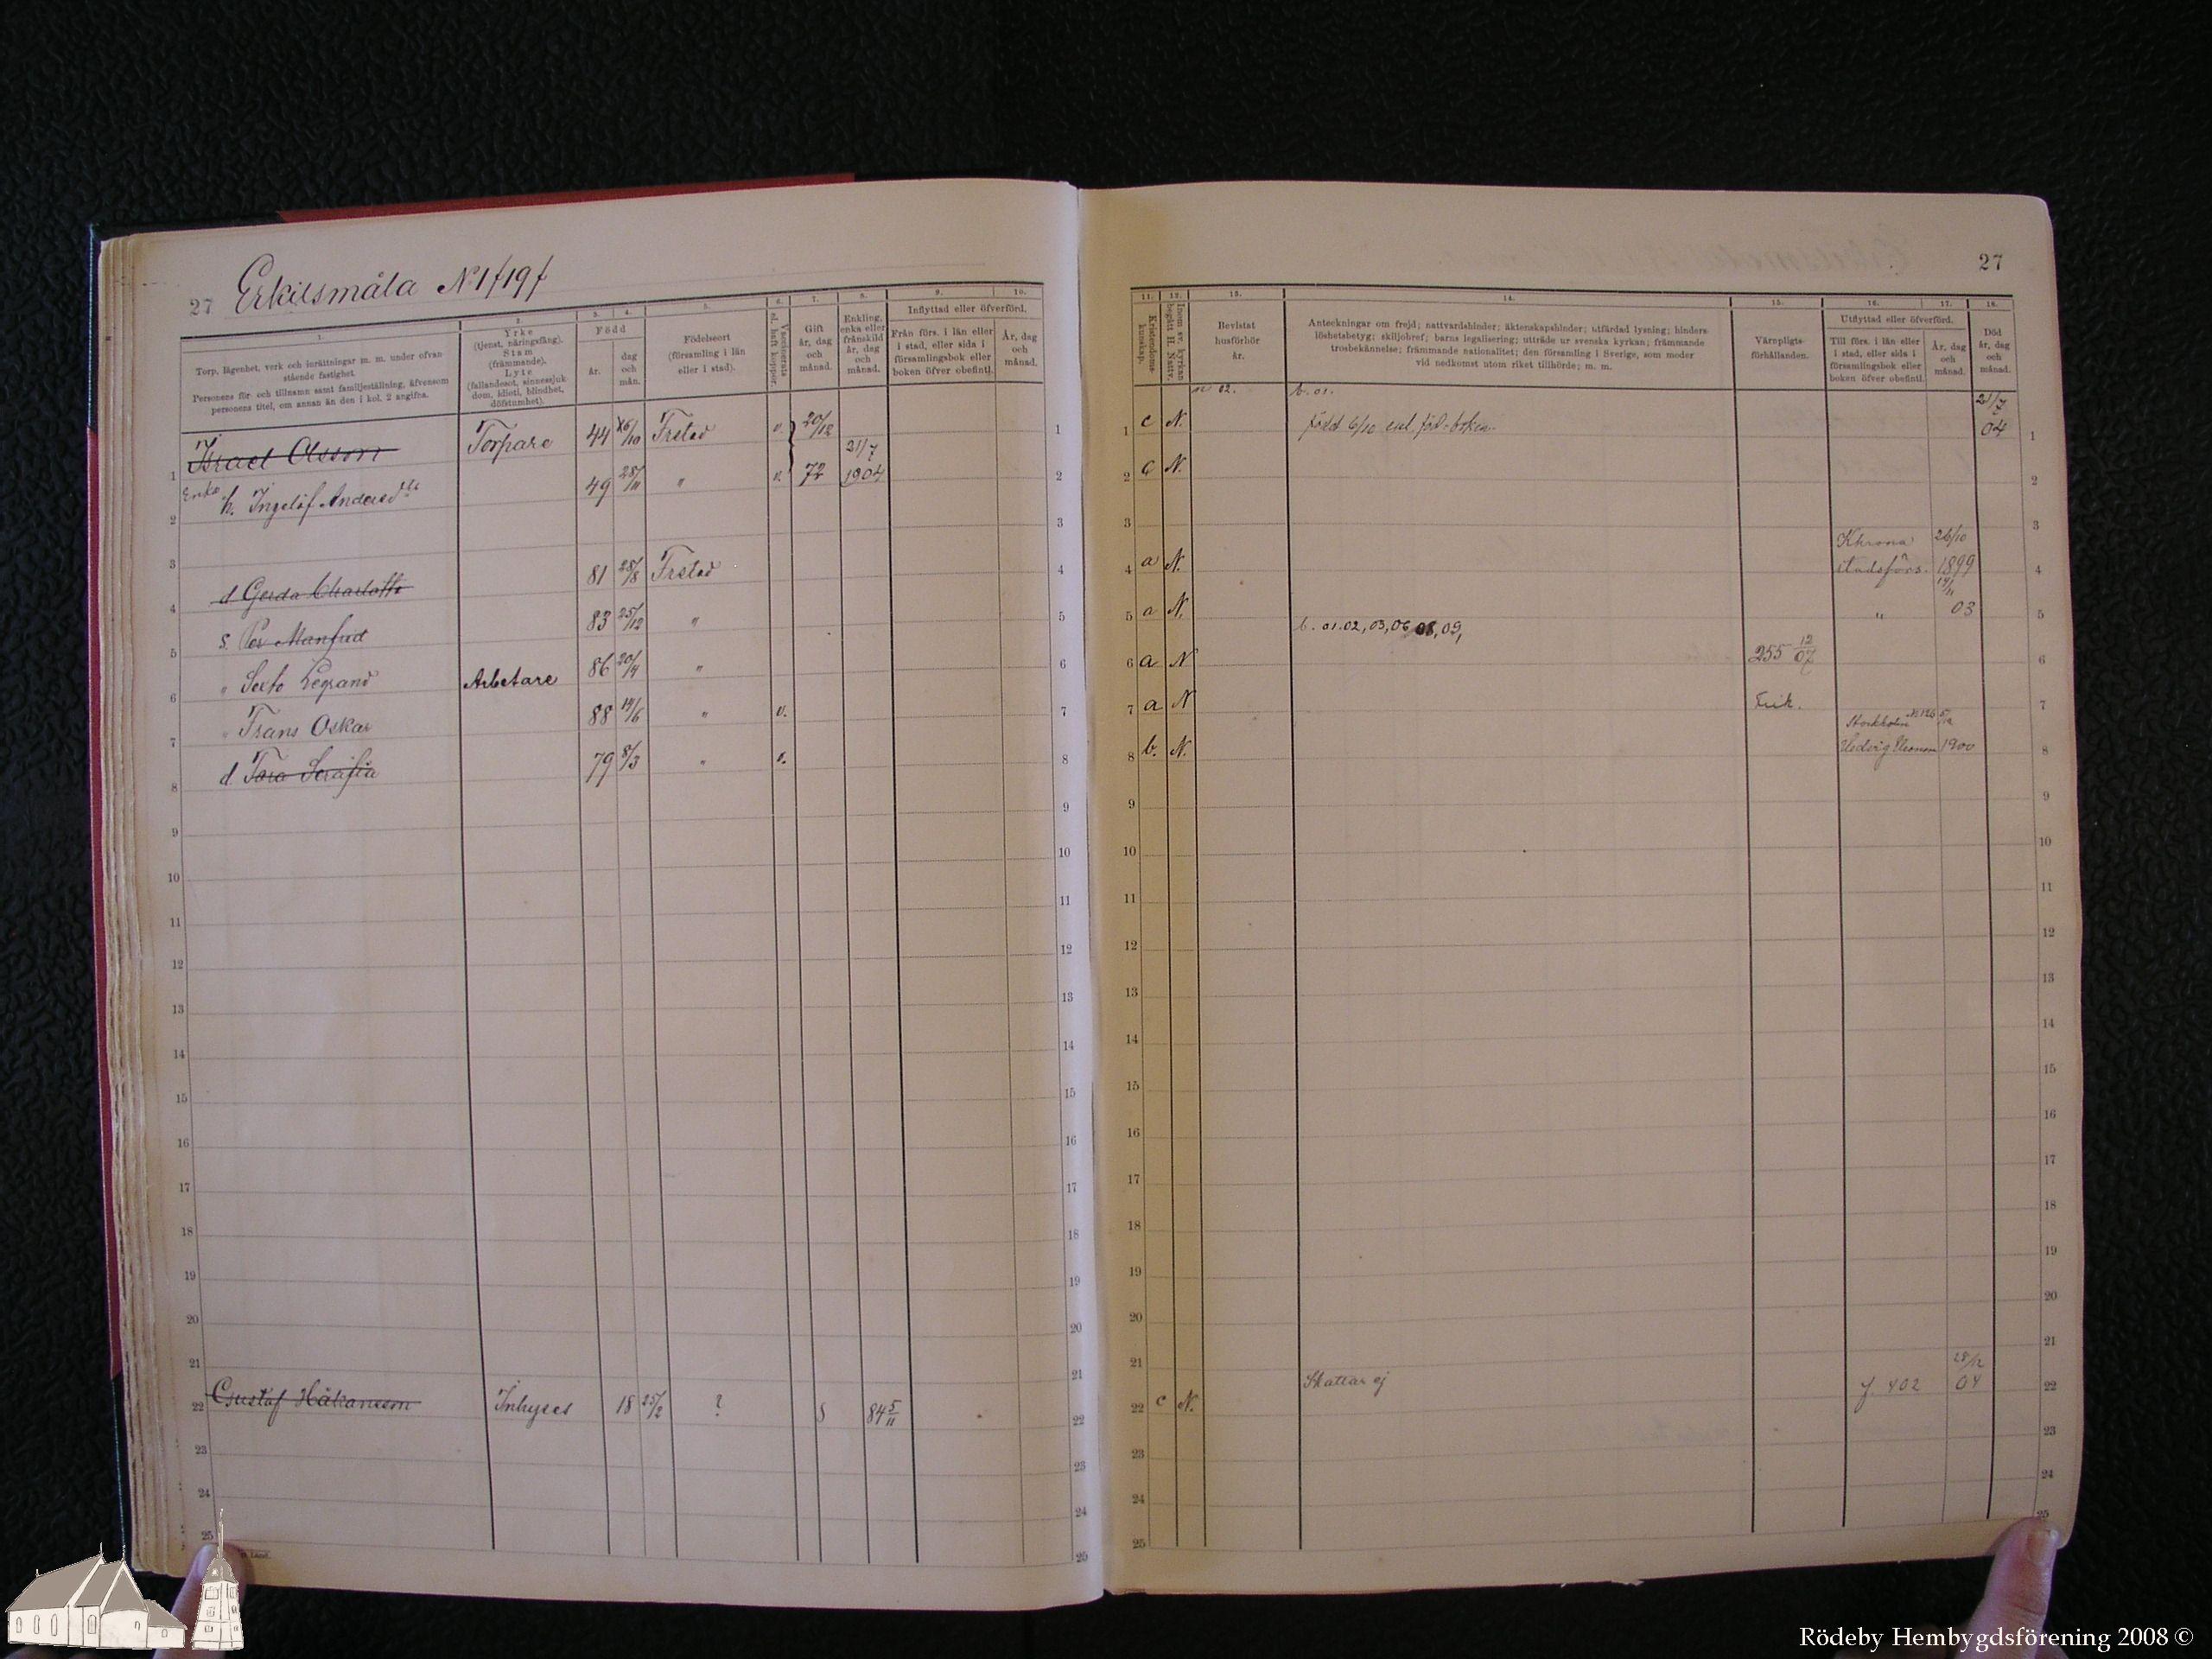 27 Erkilsmåla N 1f19f
1. Torp, lägenhet, verk och inrättningar m. m. under ofvanstående fastighet.
Personens för- och tillnamn samt familjeställning, äfvensom personens titel, om annan än den i kol. 2 angifna.
2. Yrke (tjenst, näringsfång). Stam (främmande). Lyte (fallandesot, sinnessjukdom, idioti, blindhet, döfstumhet).
Född
3. år. 4. dag och mån.
5. Födelseort (församling i län eller i stad).
6. Vaccinerats el. haft koppor.
7. Gift år, dag och månad.
8. Enkling, enka eller frånskild år, dag och månad.
Inflyttad eller öfverförd.
9. Från förs. i län eller i stad, eller sida i församlingsbok eller boken öfver obefintl.
10. År, dag och månad.
1 Israel Olsson Torpare 44 6/10 Frstad v. 20/12
2 Enka h. Ingelöf Andersdtr 49 28/11 " v. 72 21/7 1904
3
4 d Gerda Charlotta 81 28/8 Frstad
5 s. Per Manfrid 83 25/12 "
6 " Sexto Legrand Arbetare 86 20/4 "
7 " Frans Oskar 88 19/6 " v.
8 d. Tora Serafia 79 8/3 " v.
9
10
11
12
13
14
15
16
17
18
19
20
21
22 Gustaf Håkansson Inhyses 18 25/2 ? 84 5/11
23
24
25
27
11. Kristendomskunskap.
12. Inom sv. kyrkan begått H. Nattv.
13. Bevistat husförhör år.
14. Anteckningar om frejd; nattvardshinder; äktenskapshinder; utfärdad lysning; hinderslöshetsbetyg; skiljobref; barns legalisering; utträde ur svenska kyrkan; främmande trosbekännelse; främmande nationalitet; den församling i Sverige, som moder vid nedkomst utom riket tillhörde; m. m.
15. Värnpligtsförhållanden.
Utflyttad eller öfverförd.
16. Till förs. i län eller i stad, eller sida i församlingsbok eller boken öfver obefintl.
17. År, dag och månad.
18. Död år, dag och månad.
02. b. 01.
1 c N. född 6/10 enl. föd-boken. 21/7 04
2 c N.
3
4 a N. Khrona stadsförs. 26/10 1899
5 a N. " 19/11 03
b. 01.02,03,06,08,09,
6 a N 255 12/07
7 a N Frik.
8 b. N. Stockholm N 126 Hedvig Eleonora 5/12 1900
9
10
11
12
13
14
15
16
17
18
19
20
21
22 c N. Skattar ej f. 402 28/12 04
23
24
25
Rödeby Hembygdsförening 2008 ©